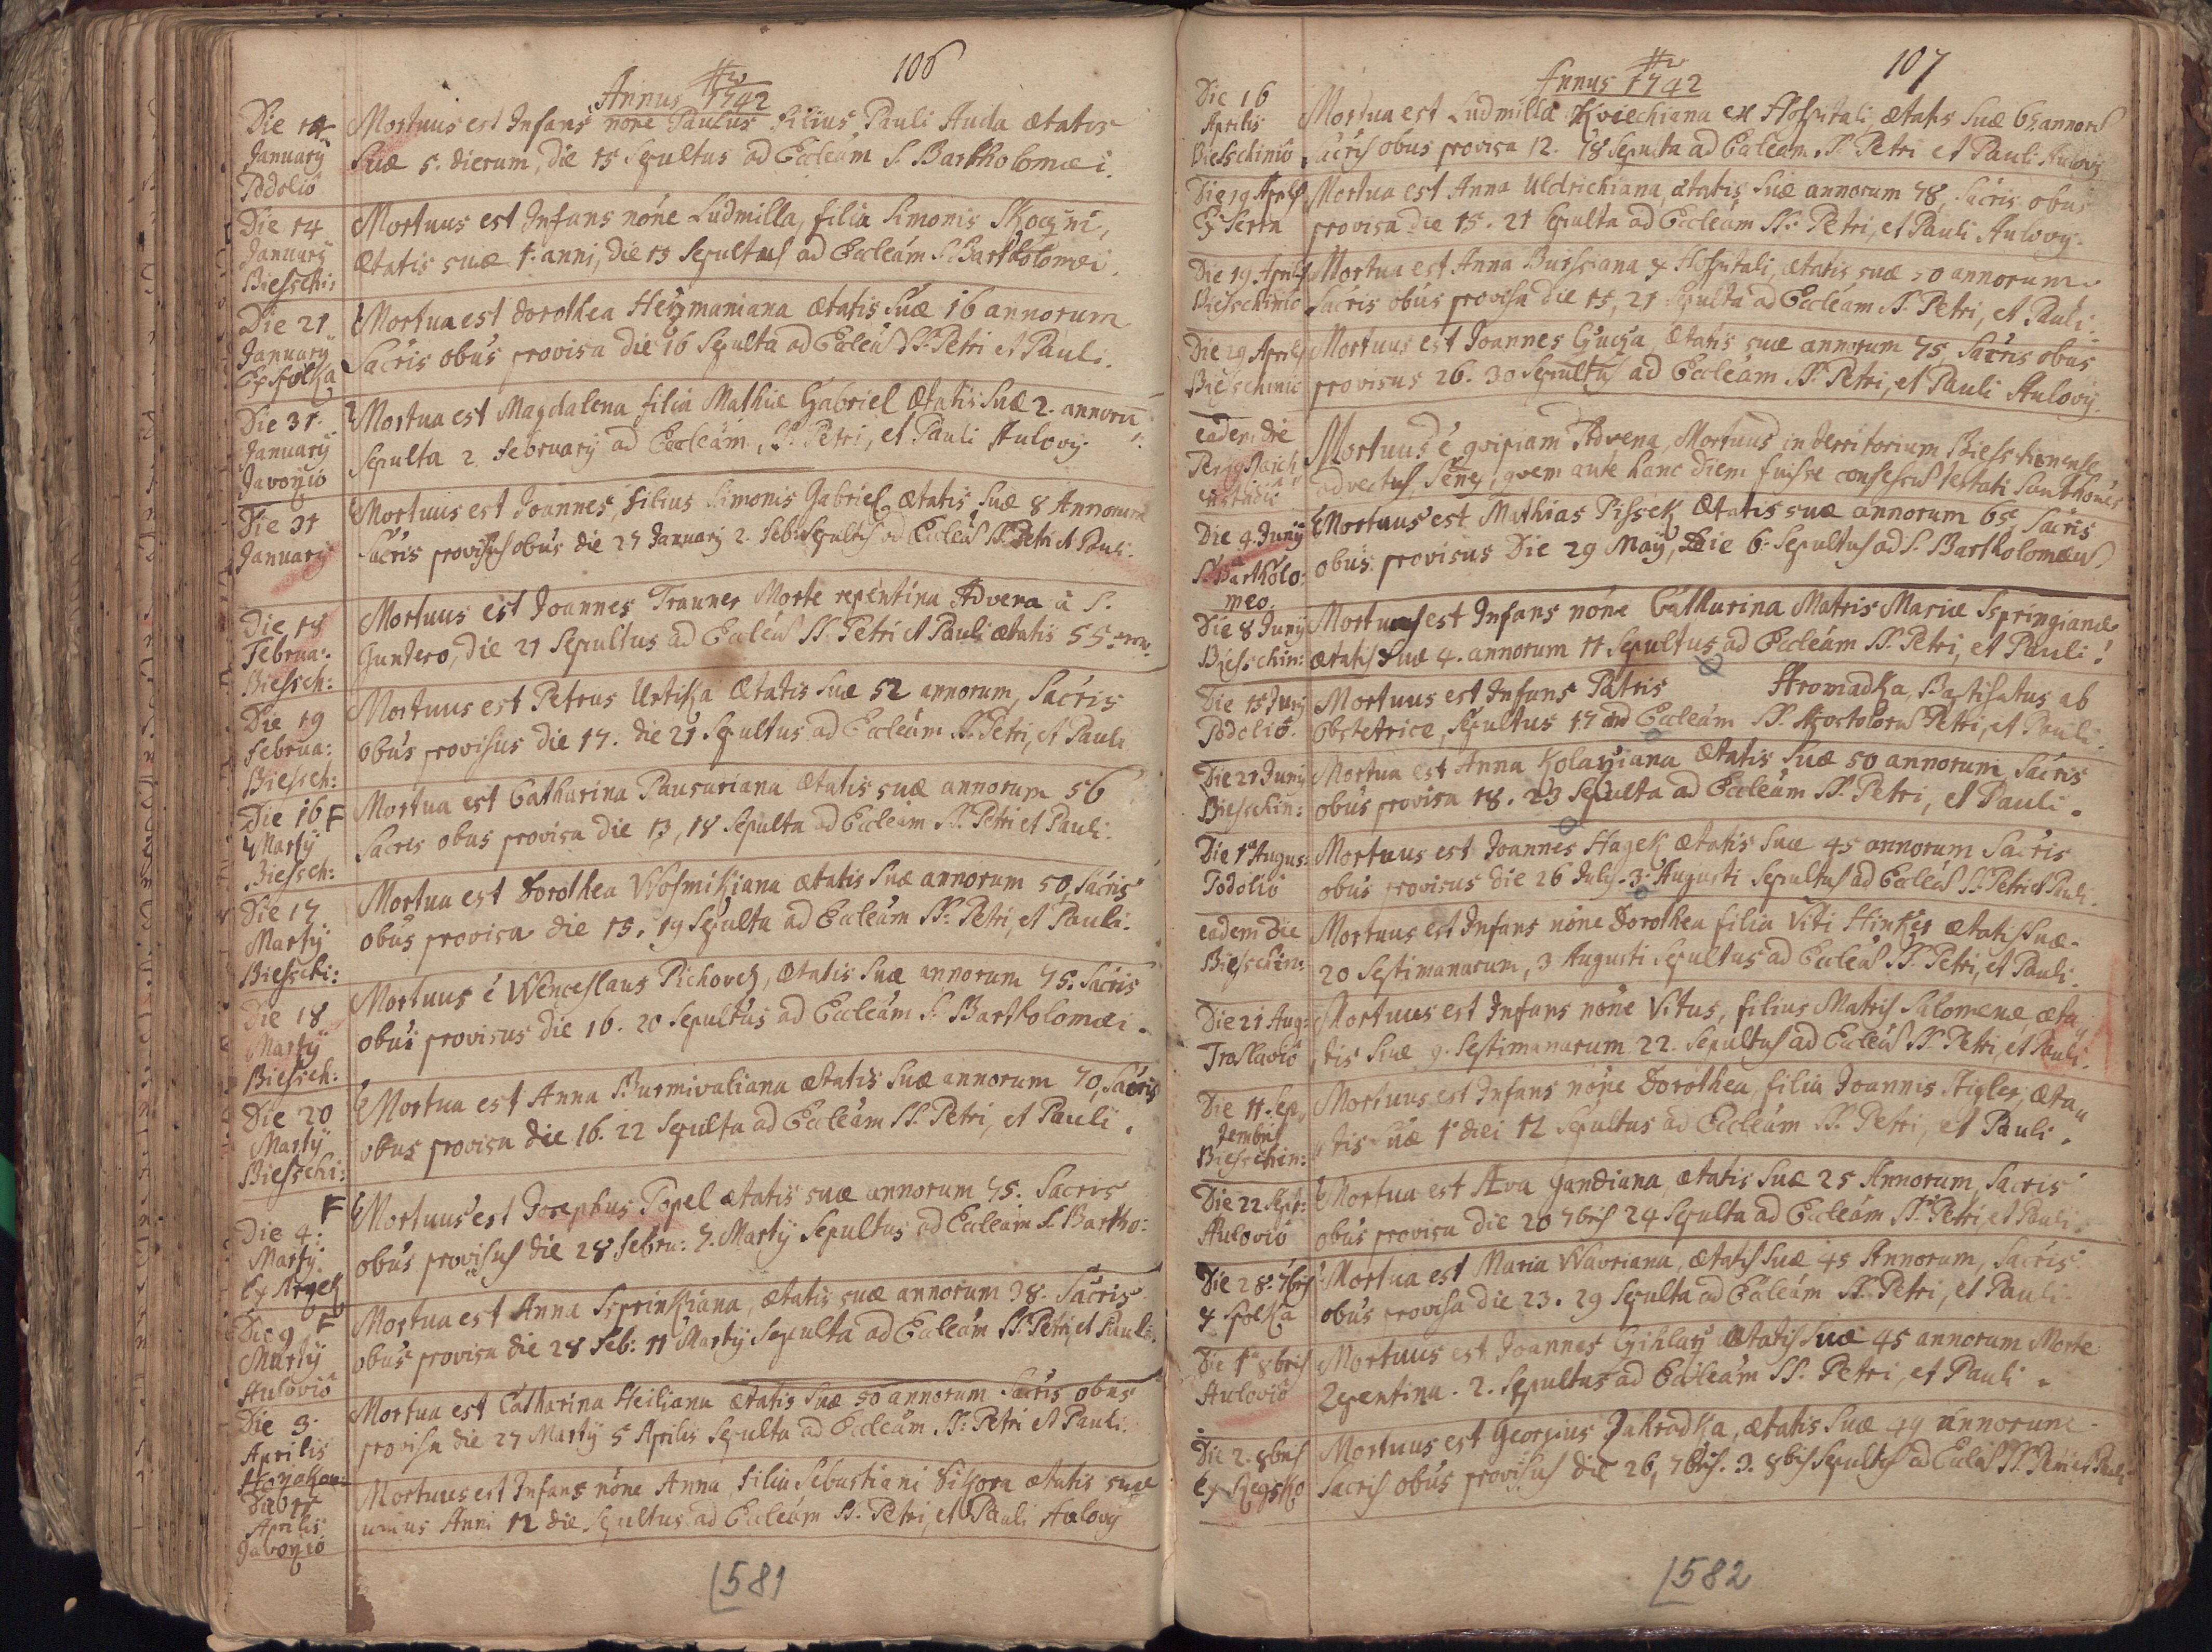 106
Annus 1742
Die 14 January Podolio
Mortuus est Infans nõne Paulus Filius Pauli Auda ætatis
suæ 5. dierum, die 15 Sepultus ad Eccleám S. Bartholomæi.
Die 14 January Biesschi:
Mortuus est Infans nõne Ludmilla, filia Simonis
Ætatis suæ 1. anni, die 15 Sepultus ad Eccleám S. Bartholomæi.
Die 21 January Ex Spolka
Mortua est Dorothea Heÿmaniana Ætatis Suæ 16 annorum
Sacris obús provisa die 16 Sepulta ad Eccleã SS. Petri et Pauli.
Die 31. January Javoÿio
Mortua est Magdalena filia Mathiæ Gabriel Ætatis Suæ 2. annorũ
Sepulta 2 February ad Eccleám SS. Petri, et Pauli Aulovÿ.
Die 31 January
Mortuus est Joannes, Filius Simonis Gabriel Ætatis Suæ 8 Annorum
Sacris provisus obús die 27 January 2. Feb: Sepultus ad Eccleã SS. Petri et Pauli.
Die 18 Februa: Biessch:
Mortuus est Joannes Trauner Morte repentina Advena à S.
Guntero, die 21 Sepultus ad Eccleã SS. Petri et Pauli ætatis 55 ann.
Die 19 Februa: Biessch:
Mortuus est Petrus Urtika Ætatis Suæ 52 annorum, Sacris
obús provisus die 17. die 21 Sepultus ad Eccleám SS. Petri, et Pauli
Die 16 F Martÿ Biessch:
Mortua est Catharina Pausariana Ætatis suæ annorum 56
Sacris obus provisa die 13, 18 Sepulta ad Eccleám SS. Petri et Pauli.
Die 17 Martÿ Biesschi:
Mortua est Dorothea Wosmikiana ætatis Suæ annorum 50 Sacris
obús provisa die 15. 19 Sepulta ad Eccleám SS. Petri, et Pauli.
Die 18 Martÿ Biessch:
Mortuus é Wenceslaus Pichovez, Ætatis Suæ annorum 75. Sacris
obús provisus die 16. 20 Sepultus ad Eccleám S. Bartholomæi.
Die 20 Martÿ Biesschi:
Mortua est Anna Burmivaliana ætatis Suæ annorum 70, Sacris
obus provisa die 16. 22 Sepulta ad Eccleám SS. Petri, et Pauli.
F
Die 4: Martÿ. Ex Argek
Mortuus est Josephus Popel ætatis suæ annorum 75. Sacris
obús provisus die 28 Febru: 7. Martÿ Sepultus ad Eccleám S. Bartho:
Die 9 F Martÿ Aulovió
Mortua est Anna Ssprinkiana, ætatis suæ annorum 38. Sacris
obús provisa die 28 Feb: 11 Martÿ Sepulta ad Eccleám SS. Petri, et Pauli.
Die 3. Aprilis
Mortua est Catharina Heiliana ætatis Suæ 50 annorum Sacris obus
provisa die 27 Martÿ 5 Aprilis Sepulta ad Eccleám SS. Petri et Pauli.
Aprilis Javoÿio
Mortuus est Infans nõne Anna filia Sebastiani Sikora ætatis suæ
unius Anni 12 die Sepultus ad Eccleám SS. Petri, et Pauli Aulovÿ
581
107
Annus 1742
Die 16 Aprilis Biesschinió
Mortua est Ludmilla Kviechiana ex Hospitali, ætatis Suæ 65 annorũ
Sacris obus provisa 12. 18 Sepulta ad Eccleám SS. Petri et Pauli Aulovÿ
Die 19 Aprilis Ex Sertu
Mortua est Anna Uldrichiana, ætatis Suæ annorum 78, Sacris obús
provisa die 15. 21 Sepulta ad Eccleám SS. Petri, et Pauli Aulovÿ.
Die 19. Aprilis Biesschinio
Mortua est Anna Bussiana ex Hospitali, ætatis suæ 50 annorum
Sacris obús provisa die 15, 21 Sepulta ad Eccleám SS. Petri, et Pauli.
Die 29 Aprilis Biesschinió
Mortuus est Joannes Ætatis suæ annorum 75, Sacris obus
provisus 26. 30 Sepultus ad Eccleám SS. Petri, et Pauli Aulovÿ.
eadem die
Mortuus é quipiam Advena, Mortuus in territorium Biesschinense
advectus, Senex, quem ante hanc diem fuisse confessus testati
Die 4. Junÿ S. Bartholomeo.
Mortuus est Mathias Pissek Ætatis suæ annorum 65 Sacris
obús provisus Die 29 Maÿ, Die 6. Sepultus ad S. Bartholomæũ
Die 8 Junÿ Biesschin:
Mortuus est Infans nõne Catharina Matris Mariæ Sspringianæ
ætatis suæ 4. annorum 11 Sepultus ad Eccleám SS. Petri, et Pauli.
Die 15 Junÿ Podolió.
Mortuus est Infans Patris Hromadka, Baptisatus ab
obstetrice, Sepultus 17 ad Eccleám SS. Apostolorũ Petri, et Pauli.
Die 21 Junÿ Biesschin:
Mortua est Anna Kolaÿiana Ætatis Suæ 50 annorum Sacris
obús provisa 18. 23 Sepulta ad Eccleám SS. Petri, et Pauli.
Die 1ª Augus: Podolió
Mortuus est Joannes Hagek ætatis Suæ 45 annorum Sacris
obús provisus die 26 Julÿ. 3. Augusti Sepultus ad Eccleã SS. Petri et Pauli.
eadem die Biesschin:
Mortuus est Infans nõne Dorothea filia Viti Hinker ætatis Suæ
20 Septimanarum, 3 Augusti Sepultus ad Eccleã SS. Petri, et Pauli.
Die 21 Aug: Traslavió
Mortuus est Infans nõne Vitus, filius Matris Salomenæ æta
tis Suæ 9. Septimanarum 22. Sepultus ad Eccleã SS. Petri, et Pauli.
Die 11. Septembris Biesschin:
Mortuus est Infans nõne Dorothea, filia Joannis Stigler, æta
tis suæ 1 diei 12 Sepultus ad Eccleám SS. Petri, et Pauli.
Die 22 Sept: Aulovió
Mortua est Æva Jandiana, ætatis Suæ 25 Annorum, Sacris
obús provisa die 20 7bris 24 Sepulta ad Eccleám SS. Petri, et Pauli.
Die 28. 7bris ex Spolka
Mortua est Maria Wavriana, ætatis Suæ 45 Annorum, Sacris
obús provisa die 23. 29 Sepulta ad Eccleám SS. Petri, et Pauli.
Die 1ª 8bris Aulovió
Mortuus est Joannes Gihlaÿ ætatis Suæ 45 annorum Morte
Repentina. 2. Sepultus ad Eccleám SS. Petri, et Pauli.
Die 2. 8bris
Mortuus est Georgius Zahradka, ætatis Suæ 49 annorum
Sacris obús provisus die 26, 7bris. 3. 8bris Sepultus ad Eccleã SS. Petri et Pauli
582